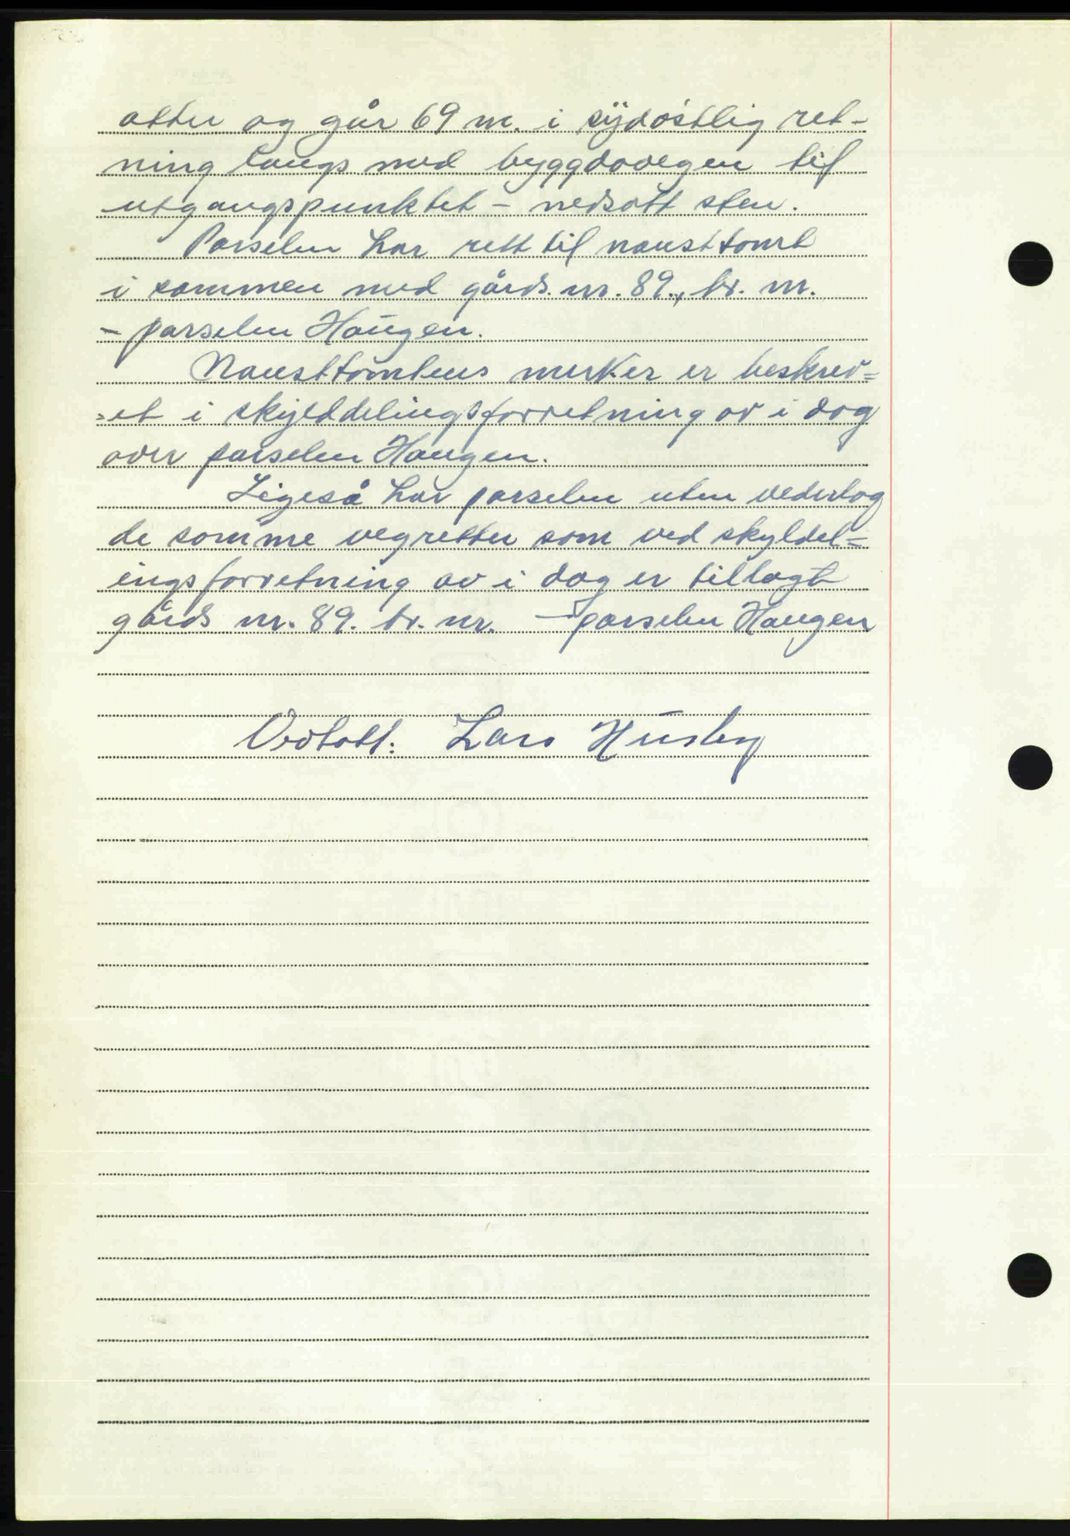 atter og går 69 m. i sydøstlig ret-
ning langs med byggdavegen til
utgangspunktet - nedsatt sten.
Parselen har rett til nausttomt
i sammen med gårds. nr. 89., br. nr.
- parselen Haugen.
Nausttomtens merker er beskrev=
=et i skylddelingsforretning av i dag
over parselen Haugen.
Ligeså har parselen uten vederlag
de samme vegretter som ved skyldel=
ingsforretning av i dag er tillagt
gårds nr. 89. br. nr. - parselen Haugen
Vedtatt: Lars Husby